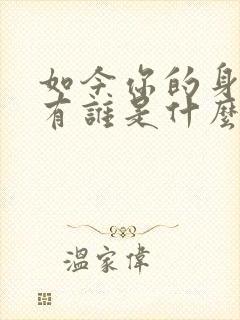 如今你的身
有誰是什麼
溫家偉